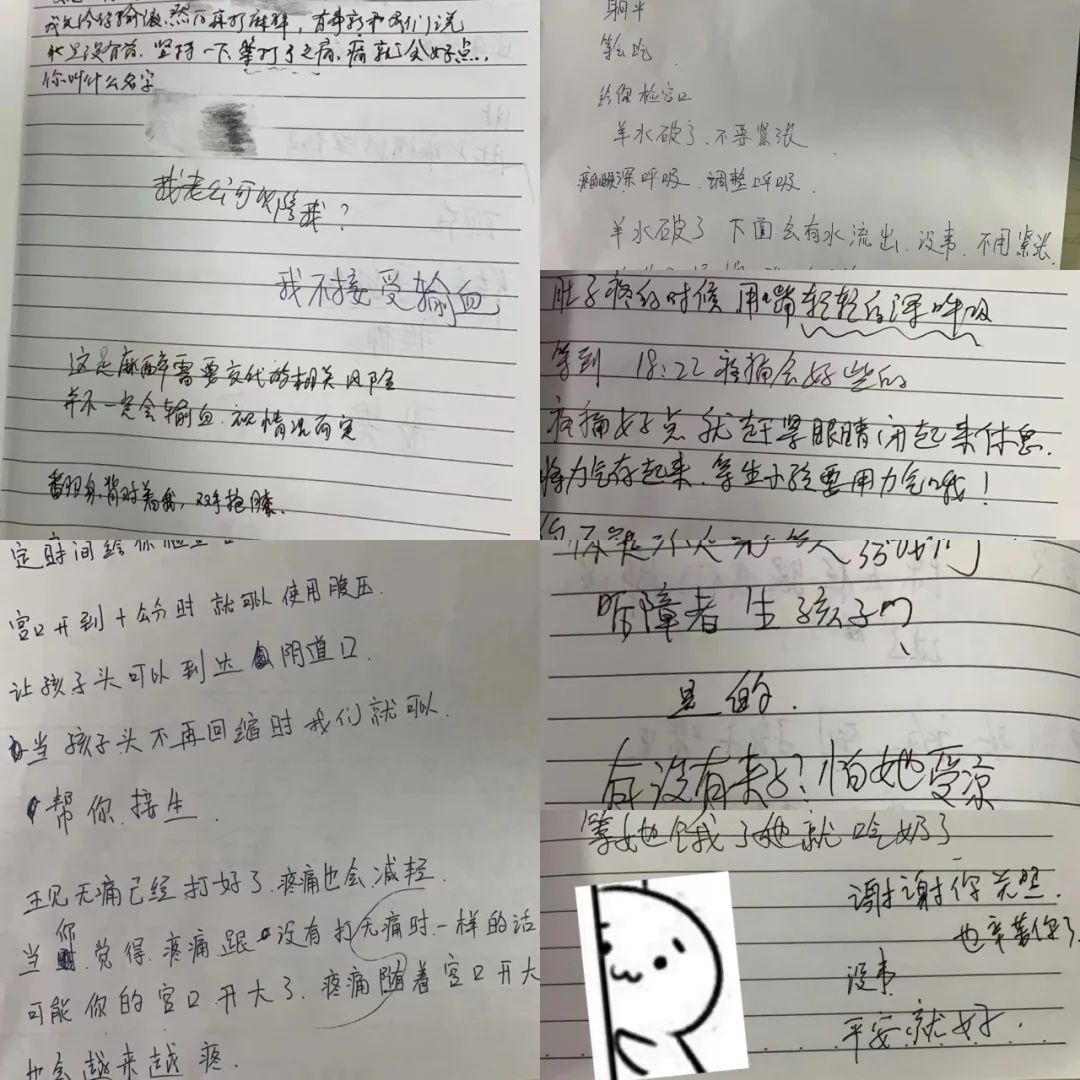 我先给你输液,然后再打麻醉,有事就和我们说
坚持一下,等打了之后,痛就会好点,
你叫什么名字
我老公可以陪我?
我不接受输血
这是麻醉需要交代的相关风险
并不一定会输血,视情况而定
翻身,背对着我,双手抱膝、
躺平
等会吃
给你检宫口
羊水破了、不要紧张
深呼吸、调整呼吸.
羊水破了 下面会有水流出、没事、不用紧张,
肚子疼的时候 用嘴轻轻的深呼吸
等到 18:22 疼痛会好些的
疼痛好点 就赶紧眼睛闭起来休息.
将力气存起来、等生小孩要用力气哦!
定时间给你
宫口开到十公分时 就可以使用腹压.
让孩子头可以到达 阴道口.
当孩子头不再回缩时 我们就可以
帮你.接生.
现无痛已经打好了.疼痛也会减轻.
当你觉得.疼痛跟没有打无痛时.一样的话
可能你的宫口开大了.疼痛随着宫口开大
也会越来越疼.
听障者 生孩子的、
是的.
有没有来了?怕她受凉
等她饿了她就吃奶了
谢谢你关照.
也辛苦你了
没事
平安就好.